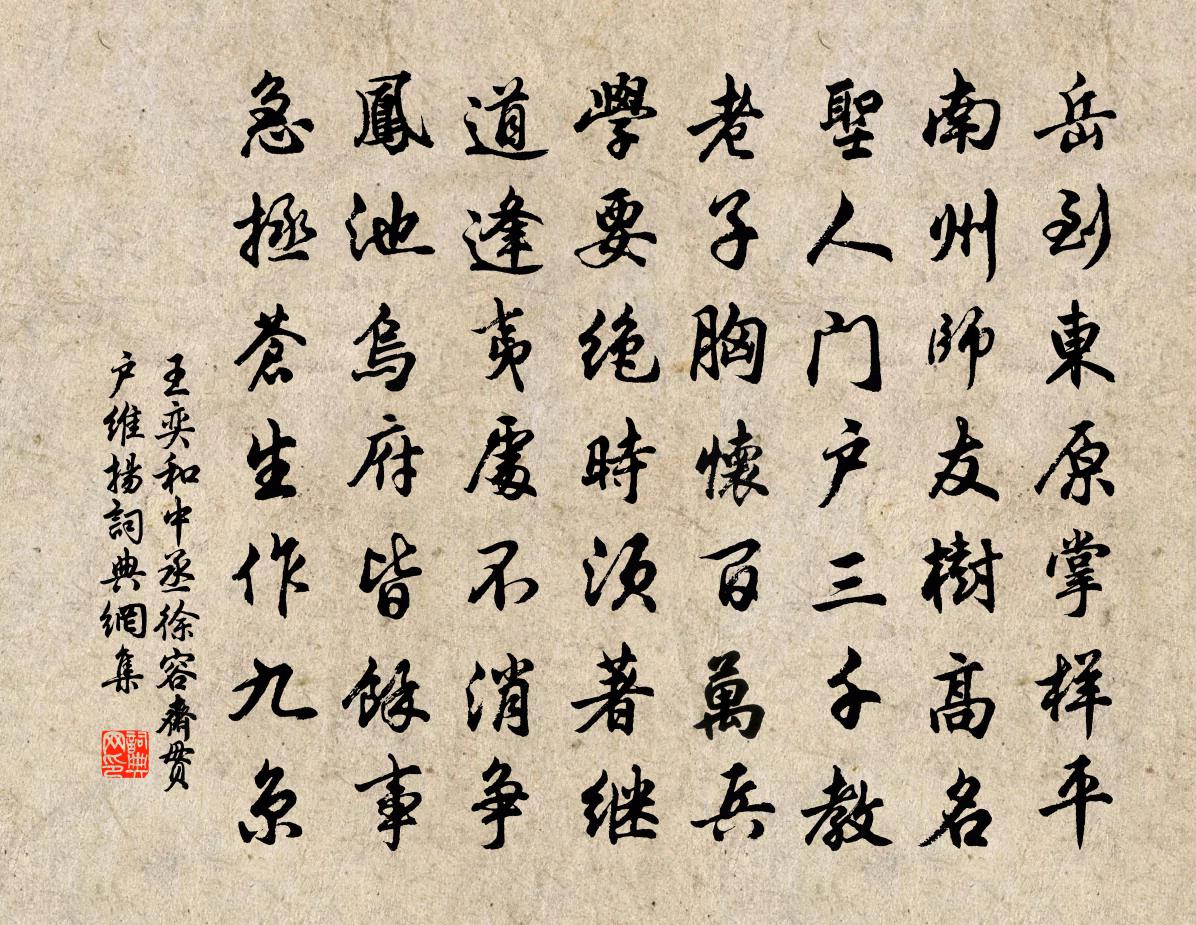 岳到東原掌样平
南州師友樹高名
聖人门户三千教
老子胸懷百萬兵
學要绝時須著继
道逢夷處不消争
鳳池烏府皆餘事
急拯蒼生作九京
王奕和中丞徐容齋貫
户維揚詞典網集
詞典
网印